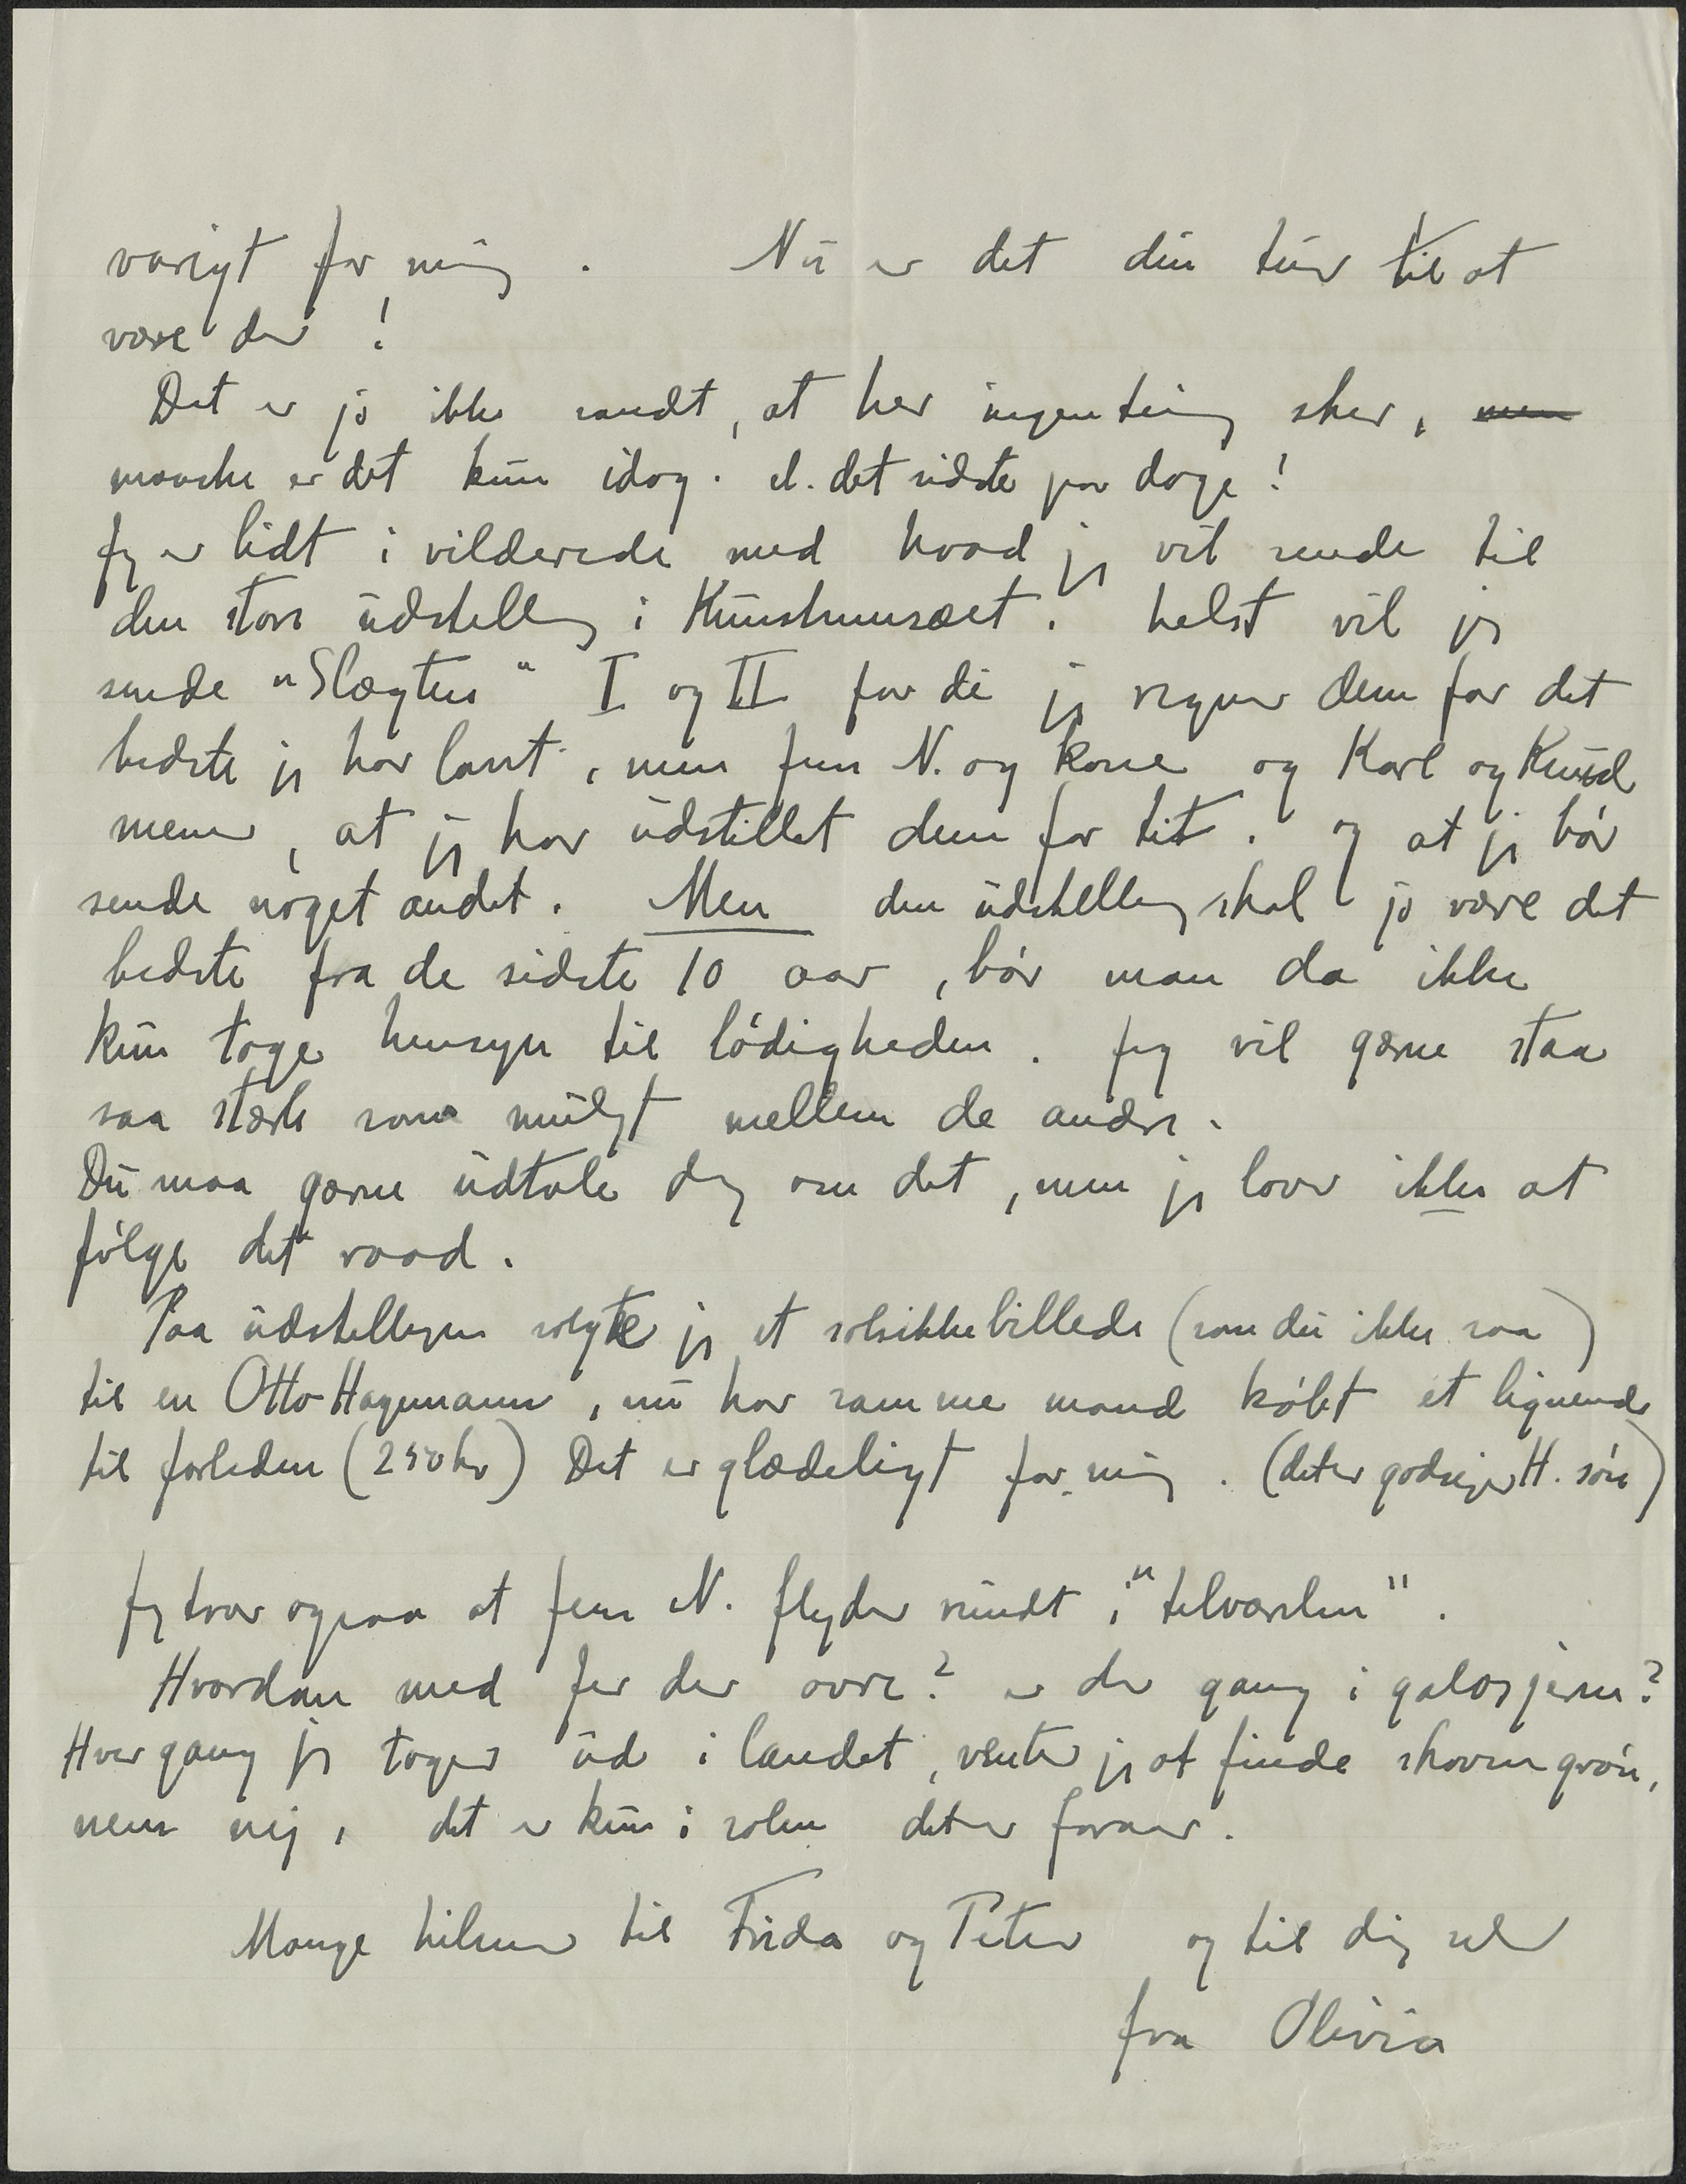 varigt for mig. Nu er det din tur til at
være der!
Det er jo ikke sandt, at her ingenting sker, men
maaske er det kun idag. el. det sidste par dage!
Jeg er lidt i vilderede med hvad jeg vil sende til
den store udstilling i Kunstmusæet. helst vil jeg
sende "Slægten" I og II fordi jeg regner dem for det
bedste jeg har lavet, men fru N. og kone og Karl og Knud
mener, at jeg har udstillet dem for tit. og at jeg bör
sende noget andet. Men den udstilling skal jo være det
bedste fra de sidste 10 aar, bör man da ikke
kun tage hensyn til lödigheden. Jeg vil gærne staa
saa stærk som muligt mellem de andre.
Du maa gærne udtale dig om det, men jeg lover ikke at
fölge det raad.
Paa udstillingen solgte jeg et solsikkebillede (som du ikke saa)
til en Otto Hagemann, nu har samme mand köbt et lignende
til forleden (250 kr) Det er glædeligt for mig. (det er godsejer H. sön)
Jeg tror ogsaa at fru N. flyder rundt i "tilværelsen".
Hvordan med jer der ovre? er der gang i galosjerne?
Hver gang jeg tager ud i landet, venter jeg at finde skoven grön,
men nej, det er kun i solen det er foraar.
Mange hilsner til Frida og Peter og til dig selv
fra Olivia